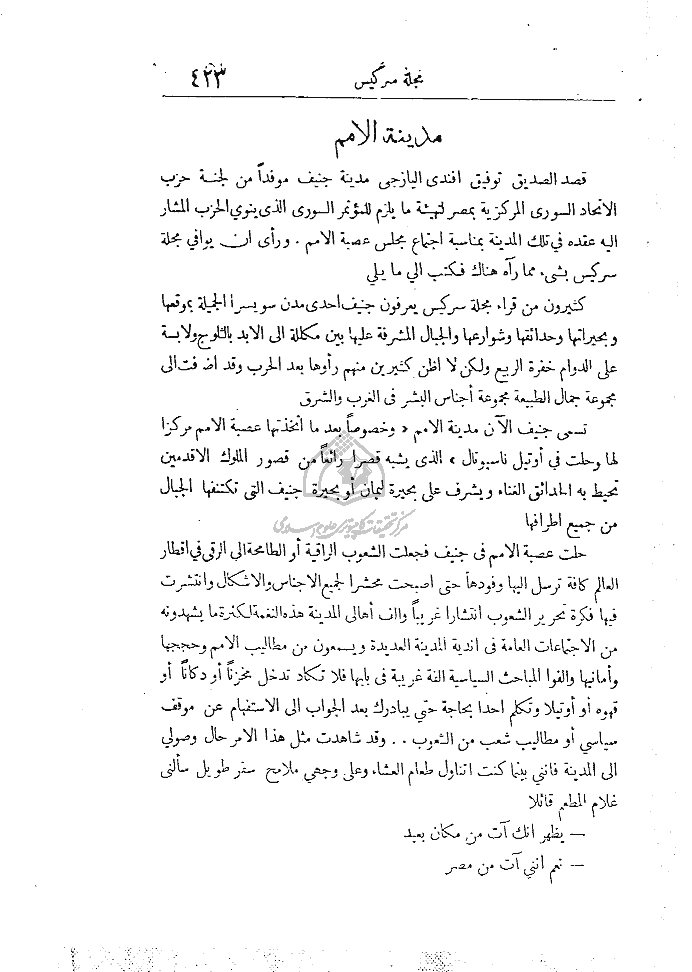 مجلة سركيس ٤٢٣
مدينة الامم
قصد الصديق توفيق افندى اليازجى مدينة جنيف موفداً من لجنة حزب
الاتحاد السورى المركزية بمصر لتهيئة ما يلزم للمؤتمر السورى الذى ينوي الحزب المشار
اليه عقده فى تلك المدينة بمناسبة اجتماع مجلس عصبة الامم . ورأى ان يوافي مجلة
سركيس بشىء مما رآه هناك فكتب الي ما يلي
كثيرون من قراء مجلة سركيس يعرفون جنيف احدى مدن سويسرا الجميلة بموقعها
وبحيراتها وحدائقها وشوارعها والجبال المشرفة عليها بين مكللة الى الابد بالثلوج ولابسة
على الدوام خفرة الربيع ولكن لا اظن كثيرين منهم رأوها بعد الحرب وقد اضافت الى
مجموعة جمال الطبيعة مجموعة أجناس البشر فى الغرب والشرق
تسمى جنيف الآن مدينة الامم « وخصوصاً بعد ما اتخذتها عصبة الامم مركزا
لها وحلت في أوتيل ناسيونال » الذى يشبه قصرا رائعاً من قصور الملوك الاقدمين
تحيط به الحدائق الغناء ويشرف على بحيرة ليمان أو بحيرة جنيف التى تكتنفها الجبال
من جميع اطرافها
حلت عصبة الامم فى جنيف فجعلت الشعوب الراقية أو الطامحة الى الرقى فى اقطار
العالم كافة ترسل اليها وفودهاً حتى اصبحت محشرا لجميع الاجناس والاشكال وانتشرت
فيها فكرة تحرير الشعوب انتشارا غريباً والف أهالى المدينة هذه النغمة لكثرة ما يشهدونه
من الاجتماعات العامة فى اندية المدينة العديدة ويسمعون من مطاليب الامم وحججها
وأمانيها والفوا المباحث السياسية الفة غريبة فى بابها فلا تكاد تدخل مخزناً أو دكاناً أو
قهوه أو أوتيلا وتكلم احدا بحاجة حتى يبادرك بعد الجواب الى الاستفهام عن موقف
سياسي أو مطاليب شعب من الشعوب . . وقد شاهدت مثل هذا الامر حال وصولي
الى المدينة فانني بينما كنت اتناول طعام العشاء وعلى وجهي ملامح سفر طويل سألنى
غلام المطعم قائلا
— يظهر انك آت من مكان بعيد
— نعم انني آت من مصر